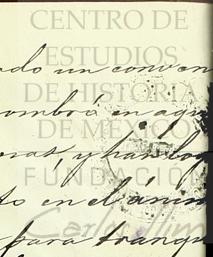 CENTRO DE
ESTUDIOS
DE HISTORIA
DE MÉXICO
FUNDACIÓN
Carlos Slim
ado un conven
ombrá en aqu
to en el ánim
para tranqu